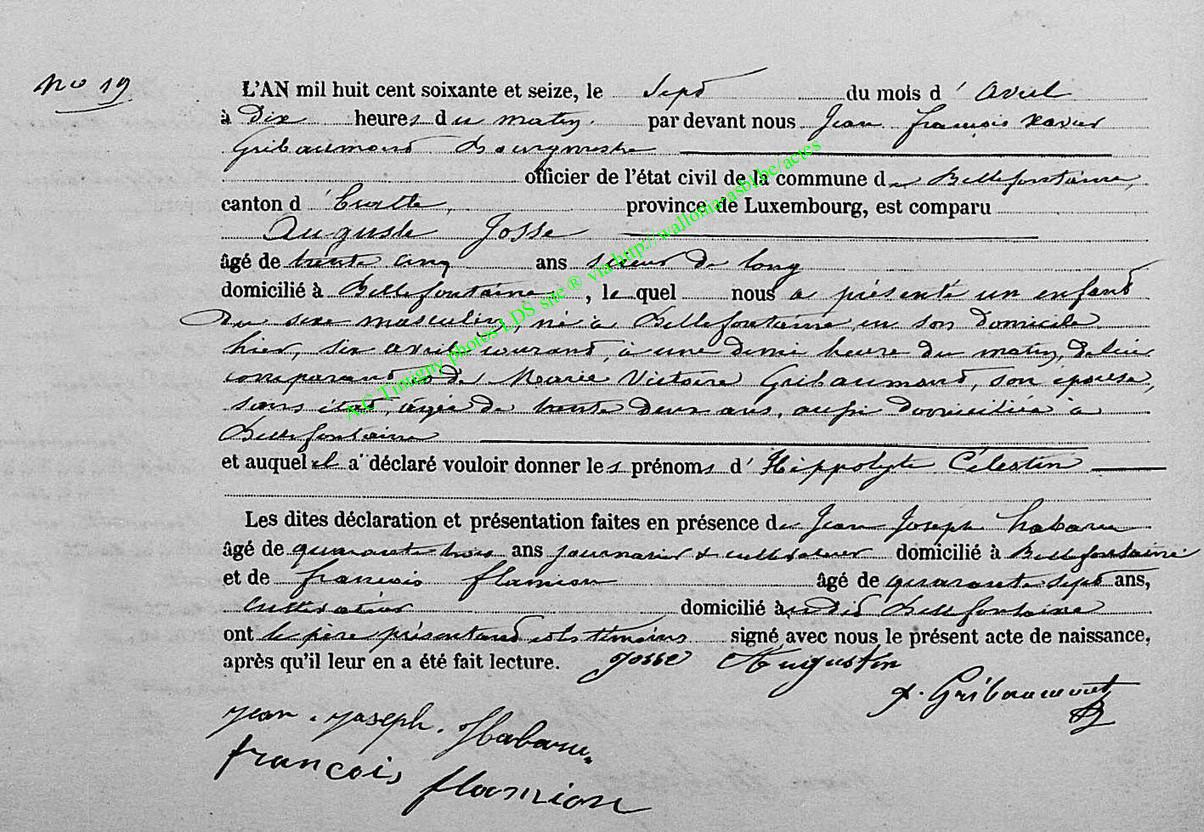 No 19
L'AN mil huit cent soixante et seize, le Sept du mois d' Avril
à Dix heures du matin. par devant nous Jean françois xavier
Gribaumont Bourgmestre
officier de l'état civil de la commune de Bellefontaine,
canton d' Etalle, province de Luxembourg, est comparu
Auguste Josse
âgé de trente cinq ans scieur de long
domicilié à Bellefontaine, le quel nous a présenté un enfant
Du sexe masculin, né à Bellefontaine en son Domicile
hier, six avril courant, à une demi heure du matin, de lui
comparant et de Marie Victoire Gribaumont, son épouse,
sans état, âgée de trente deux ans, aussi Domiciliée à
Bellefontaine
et auquel il a déclaré vouloir donner les prénoms d' Hippolyte Célestin
Les dites déclaration et présentation faites en présence de Jean Joseph habaru
âgé de quarante trois ans journalier & cultivateur domicilié à Bellefontaine
et de françois flamion âgé de quarante sept ans,
Cultivateur domicilié audit Bellefontaine
ont le père présentant et les témoins signé avec nous le présent acte de naissance,
après qu'il leur en a été fait lecture. Josse Augustin
x. Gribaumont
jean. joseph. Habaru.
francois flamion
AC Tintigny photos LDS site ® via http://walloniaasbl.be/actes